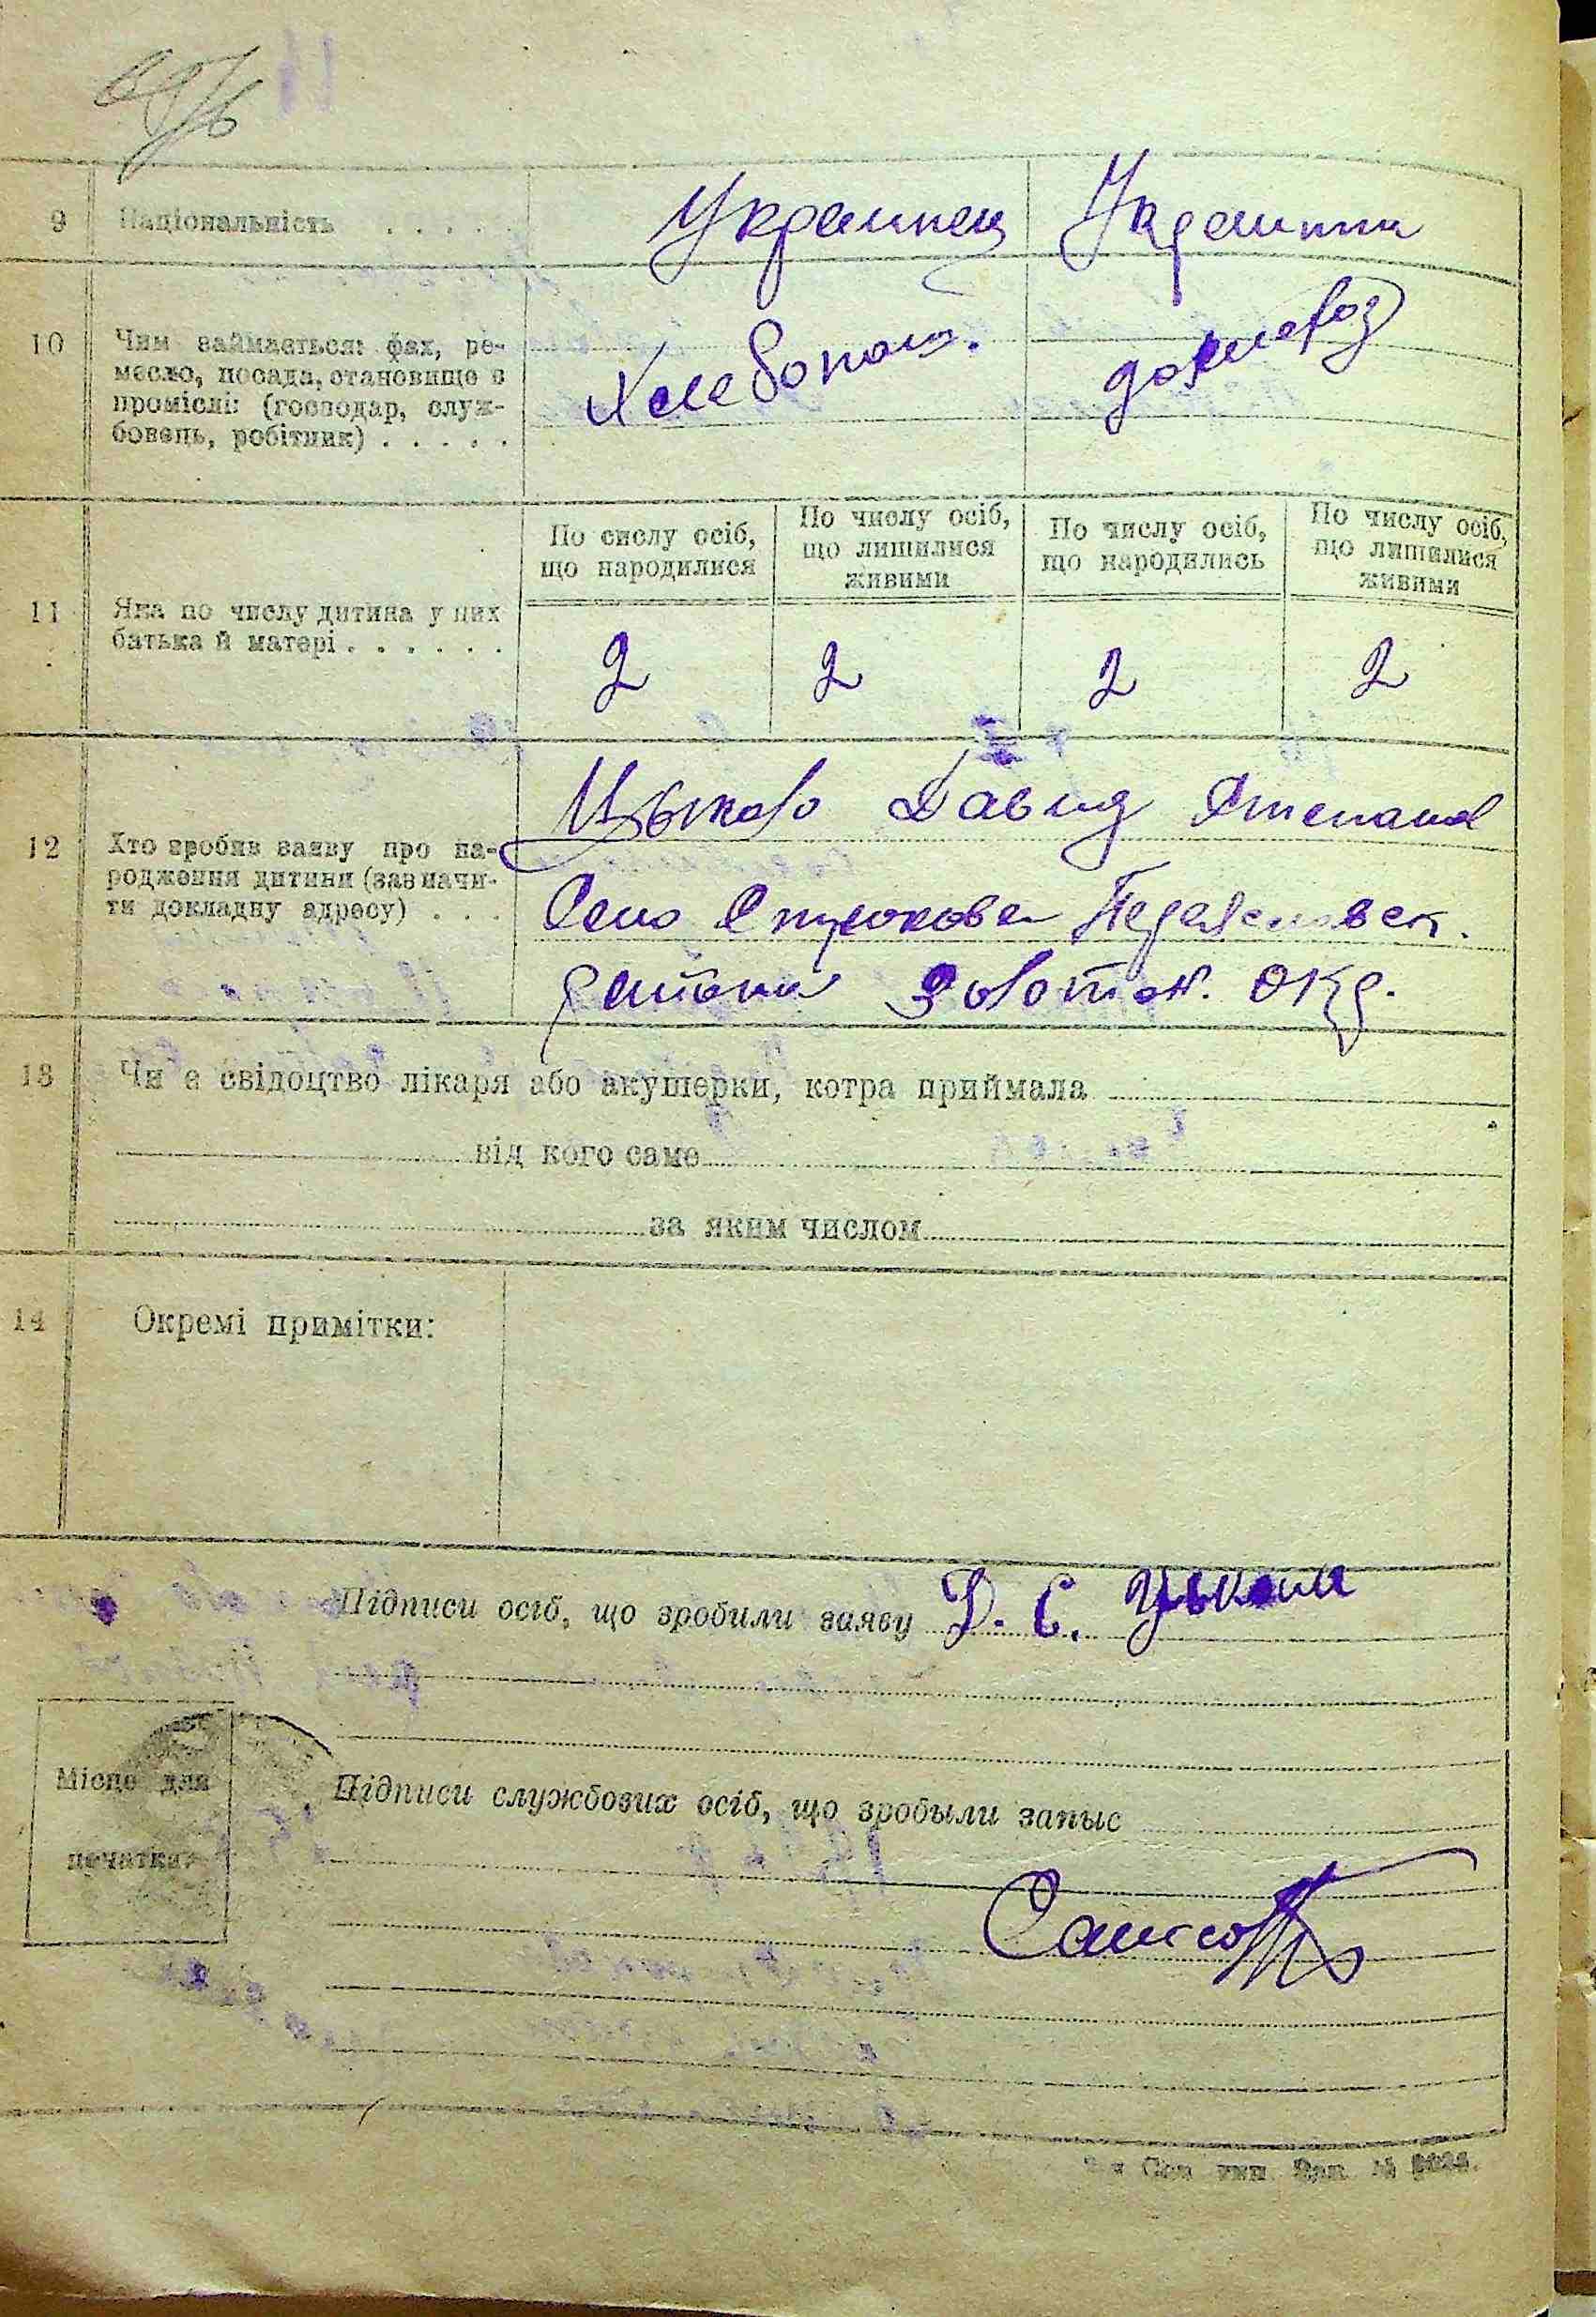 9 Національність . . . . . Украинец Украинка
10 Чим займається: фах, ре-
месло, посада, становище в
промислі: (господар, служ-
бовець, робітник) . . . . .
Хлебопаш. домохоз
По сислу осіб, що народилися
По числу осіб, що лишилися живими
По числу осіб, що народились
По числу осіб, що лишилися живими
11 Яка по числу дитина у них
батька й матері . . . . . .
2 2 2 2
Давид Степанов
12 Хто зробив заяву про на-
родження дитини (зазначи-
ти докладну адресу) . . .
Село
района Золотон. окр.
13 Чи є свідоцтво лікаря або акушерки, котра приймала
від кого саме
за яким числом
14 Окремі примітки:
Підписи осіб, що зробили заяву Д. С.
Місце для
печатки
Підписи службових осіб, що зробыли запыс